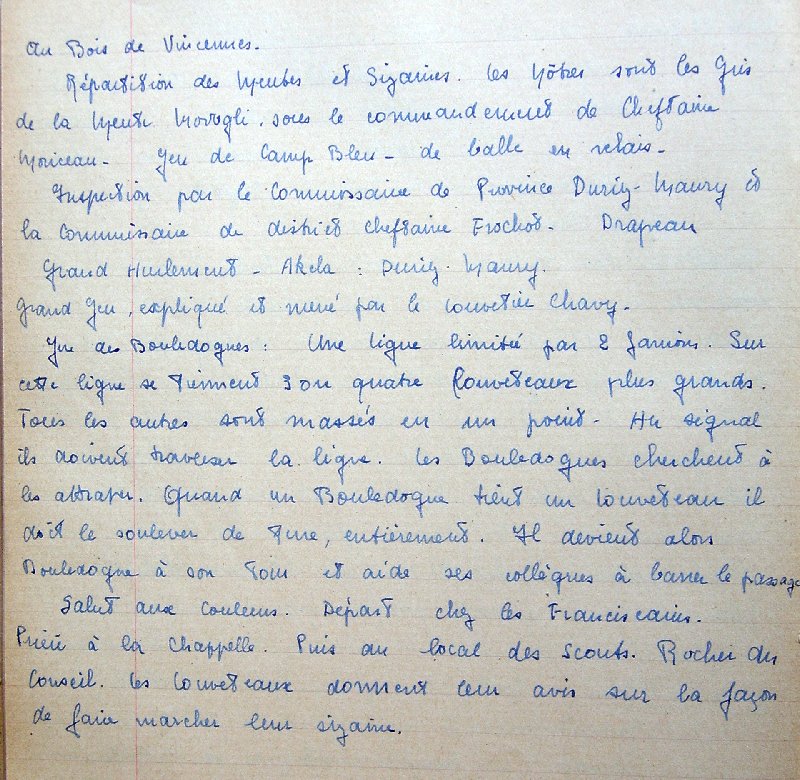 au Bois de Vincennes.
Répartition des Meutes et Sizaines. Les Nôtres sont les Gris
de la Meute Mowgli. sous le commandement de Cheftaine
Moriceau - Jeu de Camp Bleu - de balle en relais -
Inspection par le Commissaire de Province Duriy-Maury et
la Commissaire de district cheftaine Frochot - Drapeau
Grand Hurlement - Akela : Duriy-Maury.
Grand Jeu, expliqué et mené par le louvetier Chavy.
Jeu des Bouledogues : Une ligne limitée par 2 fanions. Sur
cette ligne se tiennent 3 ou quatre louveteaux plus grands.
Tous les autres sont massés en un point - Au signal
ils doivent traverser la ligne. Les Bouledogues cherchent à
les attraper. Quand un Bouledogue tient un louveteau il
doit le soulever de terre, entièrement. Il devient alors
Bouledogue à son tour et aide ses collègues à barrer le passage
Salut aux couleurs. Départ chez les Franciscains.
Prière à la Chappelle. Puis au local des Scouts. Rocher du
Conseil. Les louveteaux donnent leur avis sur la façon
de faire marcher leur sizaine.